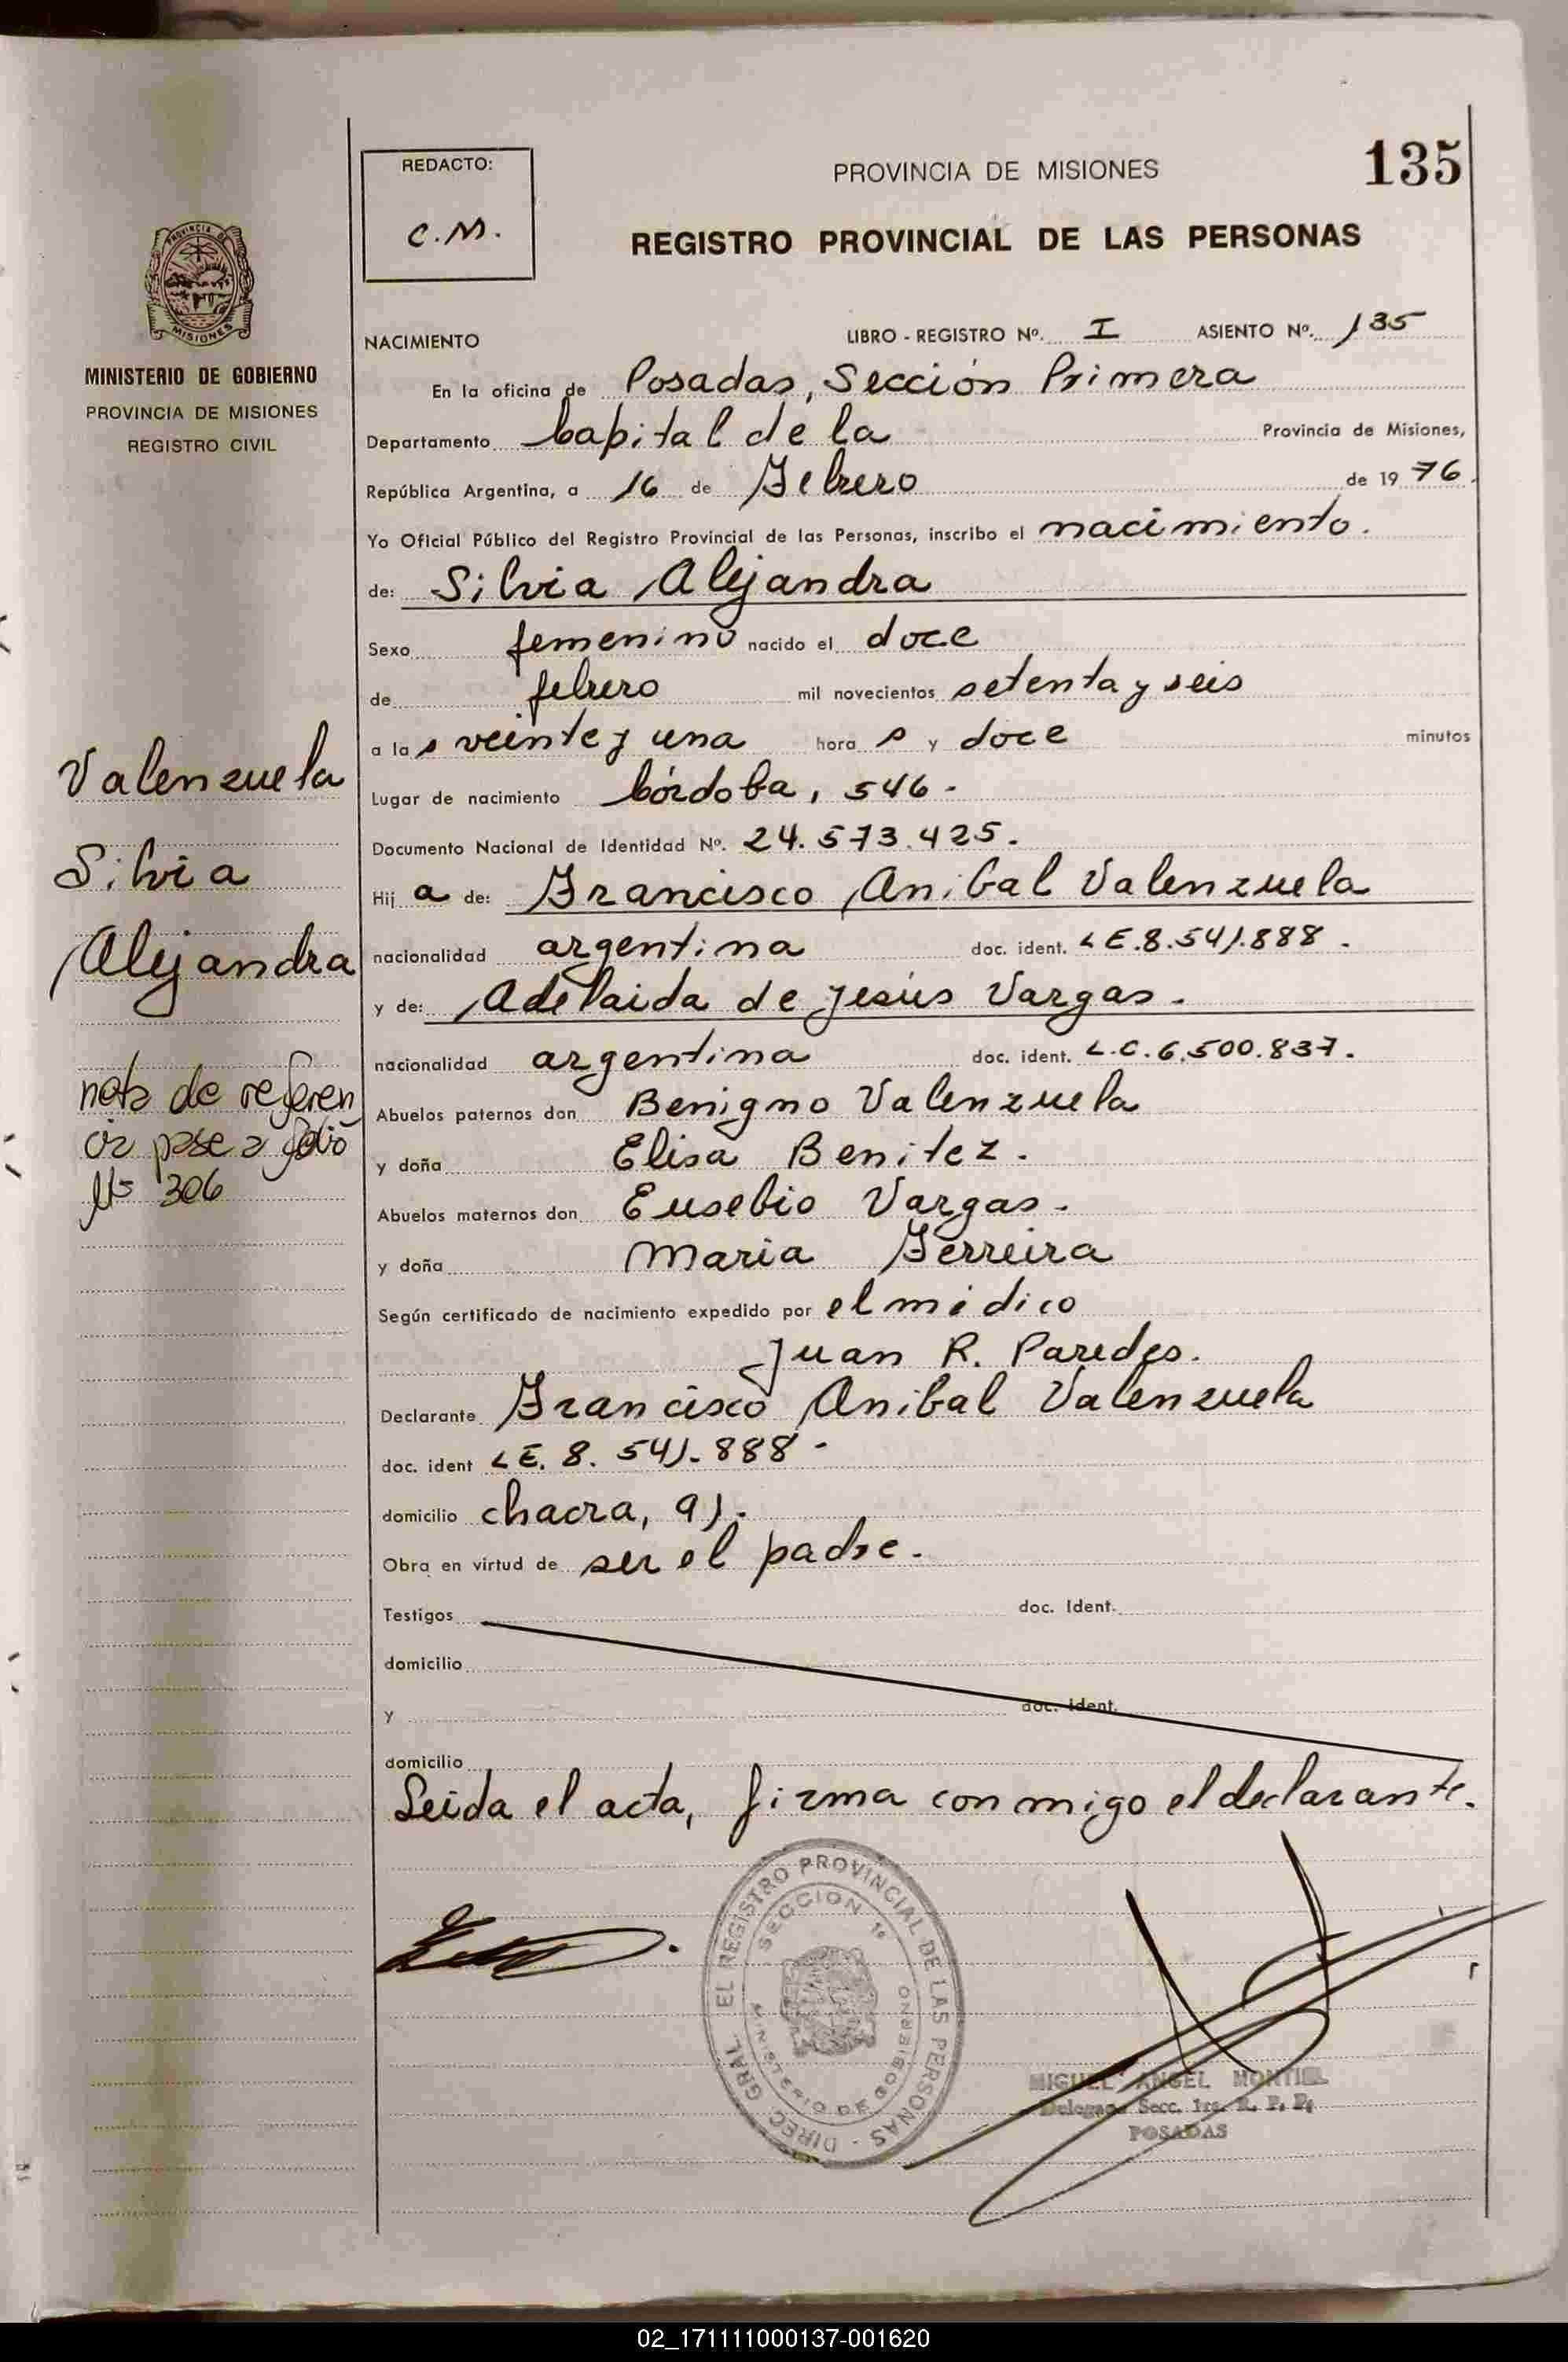 135
REDACTO:
C.M.
PROVINCIA DE MISIONES
REGISTRO PROVINCIAL DE LAS PERSONAS
PROVINCIA DE
MISIONES
MINISTERIO DE GOBIERNO
PROVINCIA DE MISIONES
REGISTRO CIVIL
NACIMIENTO LIBRO - REGISTRO Nº. I ASIENTO Nº. 135
En la oficina de Posadas, Sección Primera
Departamento Capital de la Provincia de Misiones,
República Argentina, a 16 de Febrero de 19 76.
Yo Oficial Público del Registro Provincial de las Personas, inscribo el nacimiento.
de: Silvia Alejandra
Sexo femenino nacido el doce
de febrero mil novecientos setenta y seis
a la s veinte y una hora s y doce minutos
Lugar de nacimiento Córdoba, 546-
Documento Nacional de Identidad Nº. 24.573.425.
Hij a de: Francisco Anibal Valenzuela
nacionalidad argentina doc. ident. LE.8.541.888.
y de: Adelaida de Jesús Vargas.
nacionalidad argentina doc. ident. L.C.6.500.837.
Abuelos paternos don Benigno Valenzuela
y doña Elisa Benitez.
Abuelos maternos don Eusebio Vargas.
y doña Maria Ferreira
Según certificado de nacimiento expedido por el médico
Juan R. Paredes.
Declarante Francisco Anibal Valenzuela
doc. ident LE. 8. 541.888-
domicilio chacra, 91.
Obra en virtud de ser el padre.
Testigos doc. Ident.
domicilio
y doc. ident.
domicilio
Leida el acta, firma conmigo el declarante.
Valenzuela
Silvia
Alejandra
nota de referen
cia pase a folio
Nº 306
DIREC. GRAL. EL REGISTRO PROVINCIAL DE LAS PERSONAS -
SECCION 1ª
MINISTERIO DE GOBIERNO
MIGUEL ANGEL MONTIEL
Delegado Secc. 1ra. R. P. P.
POSADAS
02_171111000137-001620